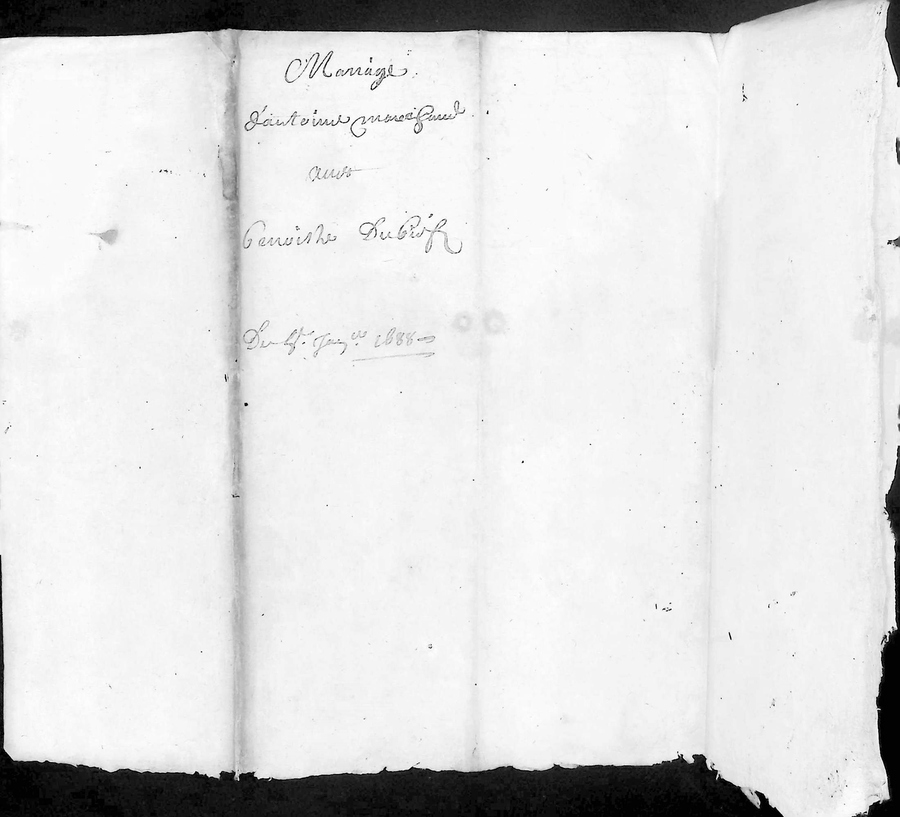 Mariage
d'antoine marchand
avec
benoiste Dubois
Du Janver 1688